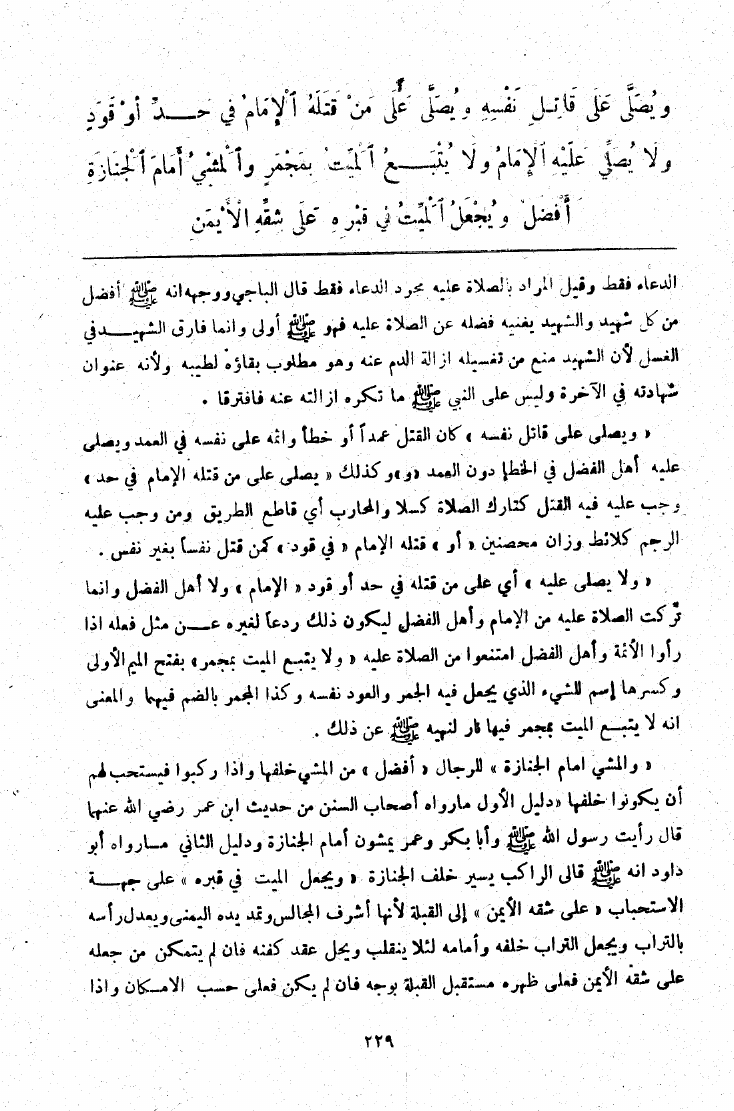 وَيُصَلَّى عَلَى قَاتِلِ نَفْسِهِ وَيُصَلَّى عَلَى مَنْ قَتَلَهُ ٱلْإِمَامُ فِي حَـــدٍّ أَوْ قَوَدٍ
وَلَا يُصَلِّي عَلَيْهِ ٱلْإِمَامُ وَلَا يُتْبَـــعُ ٱلْمَيِّتُ بِمَجْمَرٍ وَٱلْمَشْيُ أَمَامَ ٱلْجَنَازَةِ
أَفْضَلُ وَيُجْعَلُ ٱلْمَيِّتُ فِي قَبْرِهِ عَلَى شِقِّهِ الْأَيْمَنِ
الدعاء فقط وقيل المراد بالصلاة عليه مجرد الدعاء فقط قال الباجي ووجهه انه ﷺ أفضل
من كل شهيد والشهيد يغنيه فضله عن الصلاة عليه فهو ﷺ أولى وانما فارق الشهيــد في
الغسل لأن الشهيد منع من تغسيله ازالة الدم عنه وهو مطلوب بقاؤه لطيبه ولأنه عنوان
شهادته في الآخرة وليس على النبي ﷺ ما تكره ازالته عنه فافترقا .
« ويصلى على قاتل نفسه » كان القتل عمداً أو خطأ واثمه على نفسه في العمد ويصلى
عليه أهل الفضل في الخطإ دون العمد «و» وكذلك « يصلى على من قتله الإمام في حد »
وجب عليه فيه القتل كتارك الصلاة كسلا والمحارب أي قاطع الطريق ومن وجب عليه
الرجم كلائط وزان محصنين « أو » قتله الإمام « في قود » كمن قتل نفساً بغير نفس .
« ولا يصلى عليه » أي على من قتله في حد أو قود « الإمام » ولا أهل الفضل وانما
تركت الصلاة عليه من الإمام وأهل الفضل ليكون ذلك ردعاً لغيره عــن مثل فعله اذا
رأوا الأئمة وأهل الفضل امتنعوا من الصلاة عليه « ولا يتبـع الميت بمجمر» بفتح الميم الأولى
وكسرها إسم للشيء الذي يجعل فيه الجمر والعود نفسه وكذا المجمر بالضم فيهما والمعنى
انه لا يتبــع الميت بمجمر فيها نار لنهيه ﷺ عن ذلك .
« والمشي امام الجنازة » للرجال « أفضل » من المشي خلفها واذا ركبوا فيستحب لهم
أن يكونوا خلفها «دليل الأول مارواه أصحاب السنن من حديث ابن عمر رضي الله عنهما
قال رأيت رسول الله ﷺ وأبا بكر وعمر يمشون أمام الجنازة ودليل الثاني مــارواه أبو
داود انه ﷺ قال الراكب يسير خلف الجنازة « ويجعل الميت في قبره » على جهــة
الاستحباب « على شقه الأيمن » إلى القبلة لأنها أشرف المجالس وتمد يده اليمنى ويعدل رأسه
بالتراب ويجعل التراب خلفه وأمامه لئلا ينقلب ويحل عقد كفنه فان لم يتمكن من جعله
على شقه الأيمن فعلى ظهره مستقبل القبلة بوجه فان لم يكن فعلى حسب الامــكان واذا
٢٢٩